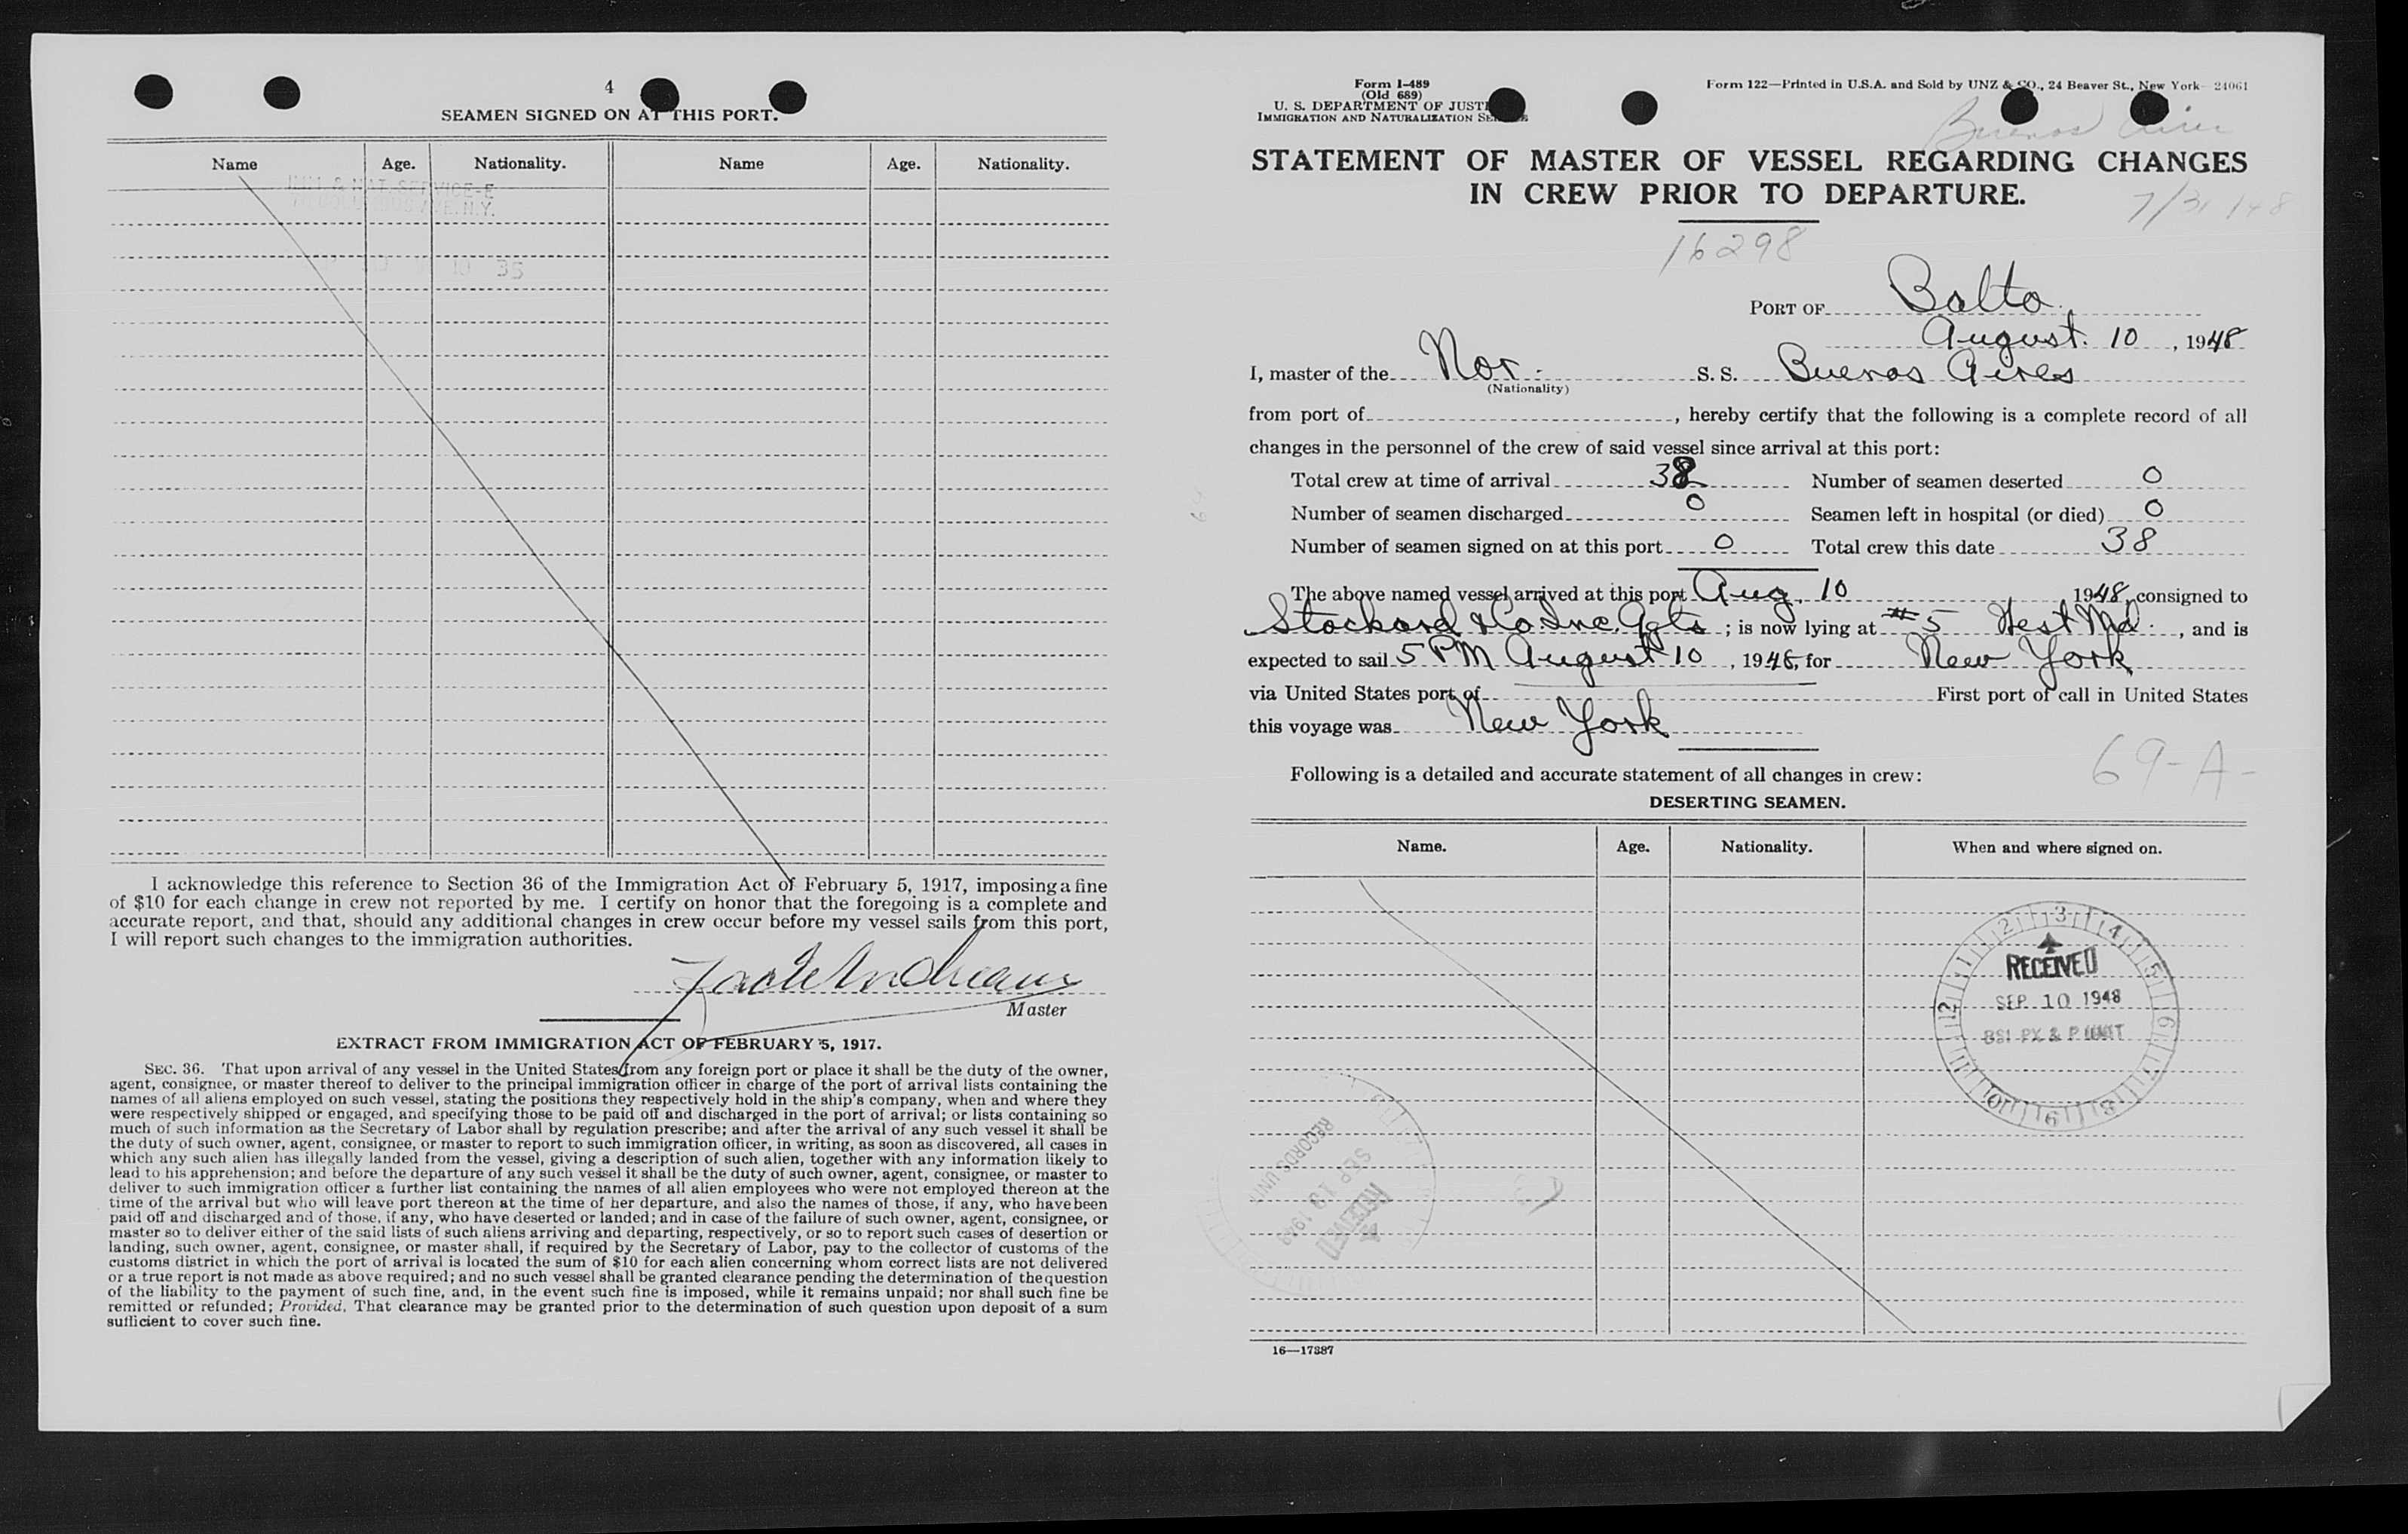 4
SEAMEN SIGNED ON AT THIS PORT.
Name Age. Nationality. Name Age. Nationality.
I acknowledge this reference to Section 36 of the Immigration Act of February 5, 1917, imposing a fine
of $10 for each change in crew not reported by me. I certify on honor that the foregoing is a complete and
accurate report, and that, should any additional changes in crew occur before my vessel sails from this port,
I will report such changes to the immigration authorities.
Master
EXTRACT FROM IMMIGRATION ACT OF FEBRUARY 5, 1917.
SEC. 36. That upon arrival of any vessel in the United States from any foreign port or place it shall be the duty of the owner,
agent, consignee, or master thereof to deliver to the principal immigration officer in charge of the port of arrival lists containing the
names of all aliens employed on such vessel, stating the positions they respectively hold in the ship's company, when and where they
were respectively shipped or engaged, and specifying those to be paid off and discharged in the port of arrival; or lists containing so
much of such information as the Secretary of Labor shall by regulation prescribe; and after the arrival of any such vessel it shall be
the duty of such owner, agent, consignee, or master to report to such immigration officer, in writing, as soon as discovered, all cases in
which any such alien has illegally landed from the vessel, giving a description of such alien, together with any information likely to
lead to his apprehension; and before the departure of any such vessel it shall be the duty of such owner, agent, consignee, or master to
deliver to such immigration officer a further list containing the names of all alien employees who were not employed thereon at the
time of the arrival but who will leave port thereon at the time of her departure, and also the names of those, if any, who have been
paid off and discharged and of those, if any, who have deserted or landed; and in case of the failure of such owner, agent, consignee, or
master so to deliver either of the said lists of such aliens arriving and departing, respectively, or so to report such cases of desertion or
landing, such owner, agent, consignee, or master shall, if required by the Secretary of Labor, pay to the collector of customs of the
customs district in which the port of arrival is located the sum of $10 for each alien concerning whom correct lists are not delivered
or a true report is not made as above required; and no such vessel shall be granted clearance pending the determination of the question
of the liability to the payment of such fine, and, in the event such fine is imposed, while it remains unpaid; nor shall such fine be
remitted or refunded; Provided, That clearance may be granted prior to the determination of such question upon deposit of a sum
sufficient to cover such fine.
Form I-489
(Old 689)
U. S. DEPARTMENT OF JUSTI
IMMIGRATION AND NATURALIZATION SE
Form 122—Printed in U.S.A. and Sold by UNZ & CO., 24 Beaver St., New York 24061
Buenos Aires
STATEMENT OF MASTER OF VESSEL REGARDING CHANGES
IN CREW PRIOR TO DEPARTURE.
7/31/48
16298
PORT OF Balto.
August. 10, 1948
I, master of the Nor. S. S. Buenos Aires
(Nationality)
from port of , hereby certify that the following is a complete record of all
changes in the personnel of the crew of said vessel since arrival at this port:
Total crew at time of arrival 38 Number of seamen deserted 0
Number of seamen discharged 0 Seamen left in hospital (or died) 0
Number of seamen signed on at this port 0 Total crew this date 38
The above named vessel arrived at this port Aug. 10 1948, consigned to
Stockard & Co. Inc. Agts ; is now lying at #5 West Md. , and is
expected to sail 5 PM August 10, 1948, for New York
via United States port of First port of call in United States
this voyage was New York
69-A-
Following is a detailed and accurate statement of all changes in crew:
DESERTING SEAMEN.
Name. Age. Nationality. When and where signed on.
RECEIVED
SEP 10 1948
BSI PX & P UNIT
RECORDS UNIT
SEP 13 1948
RECEIVED
16—17387